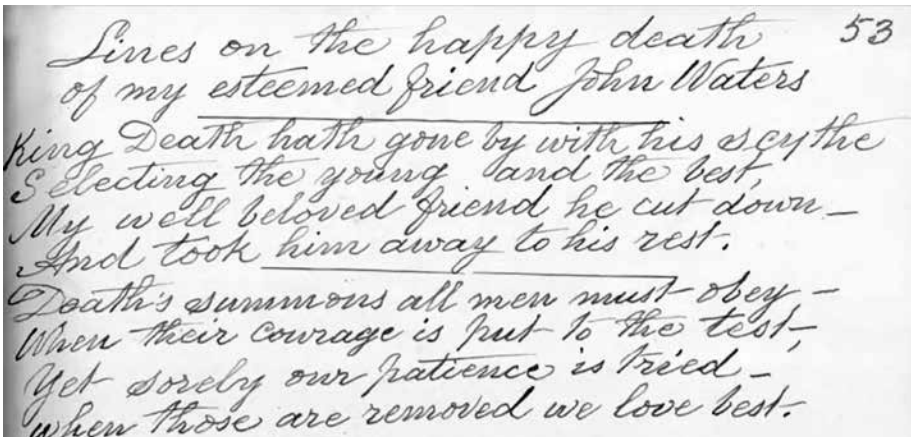 Lines on the happy death 53
of my esteemed friend John Waters
King Death hath gone by with his scythe
Selecting the young and the best,
My well beloved friend he cut down –
And took him away to his rest.
Death's summons all men must obey –
When their courage is put to the test –,
Yet sorely our patience is tried –
when those are removed we love best.